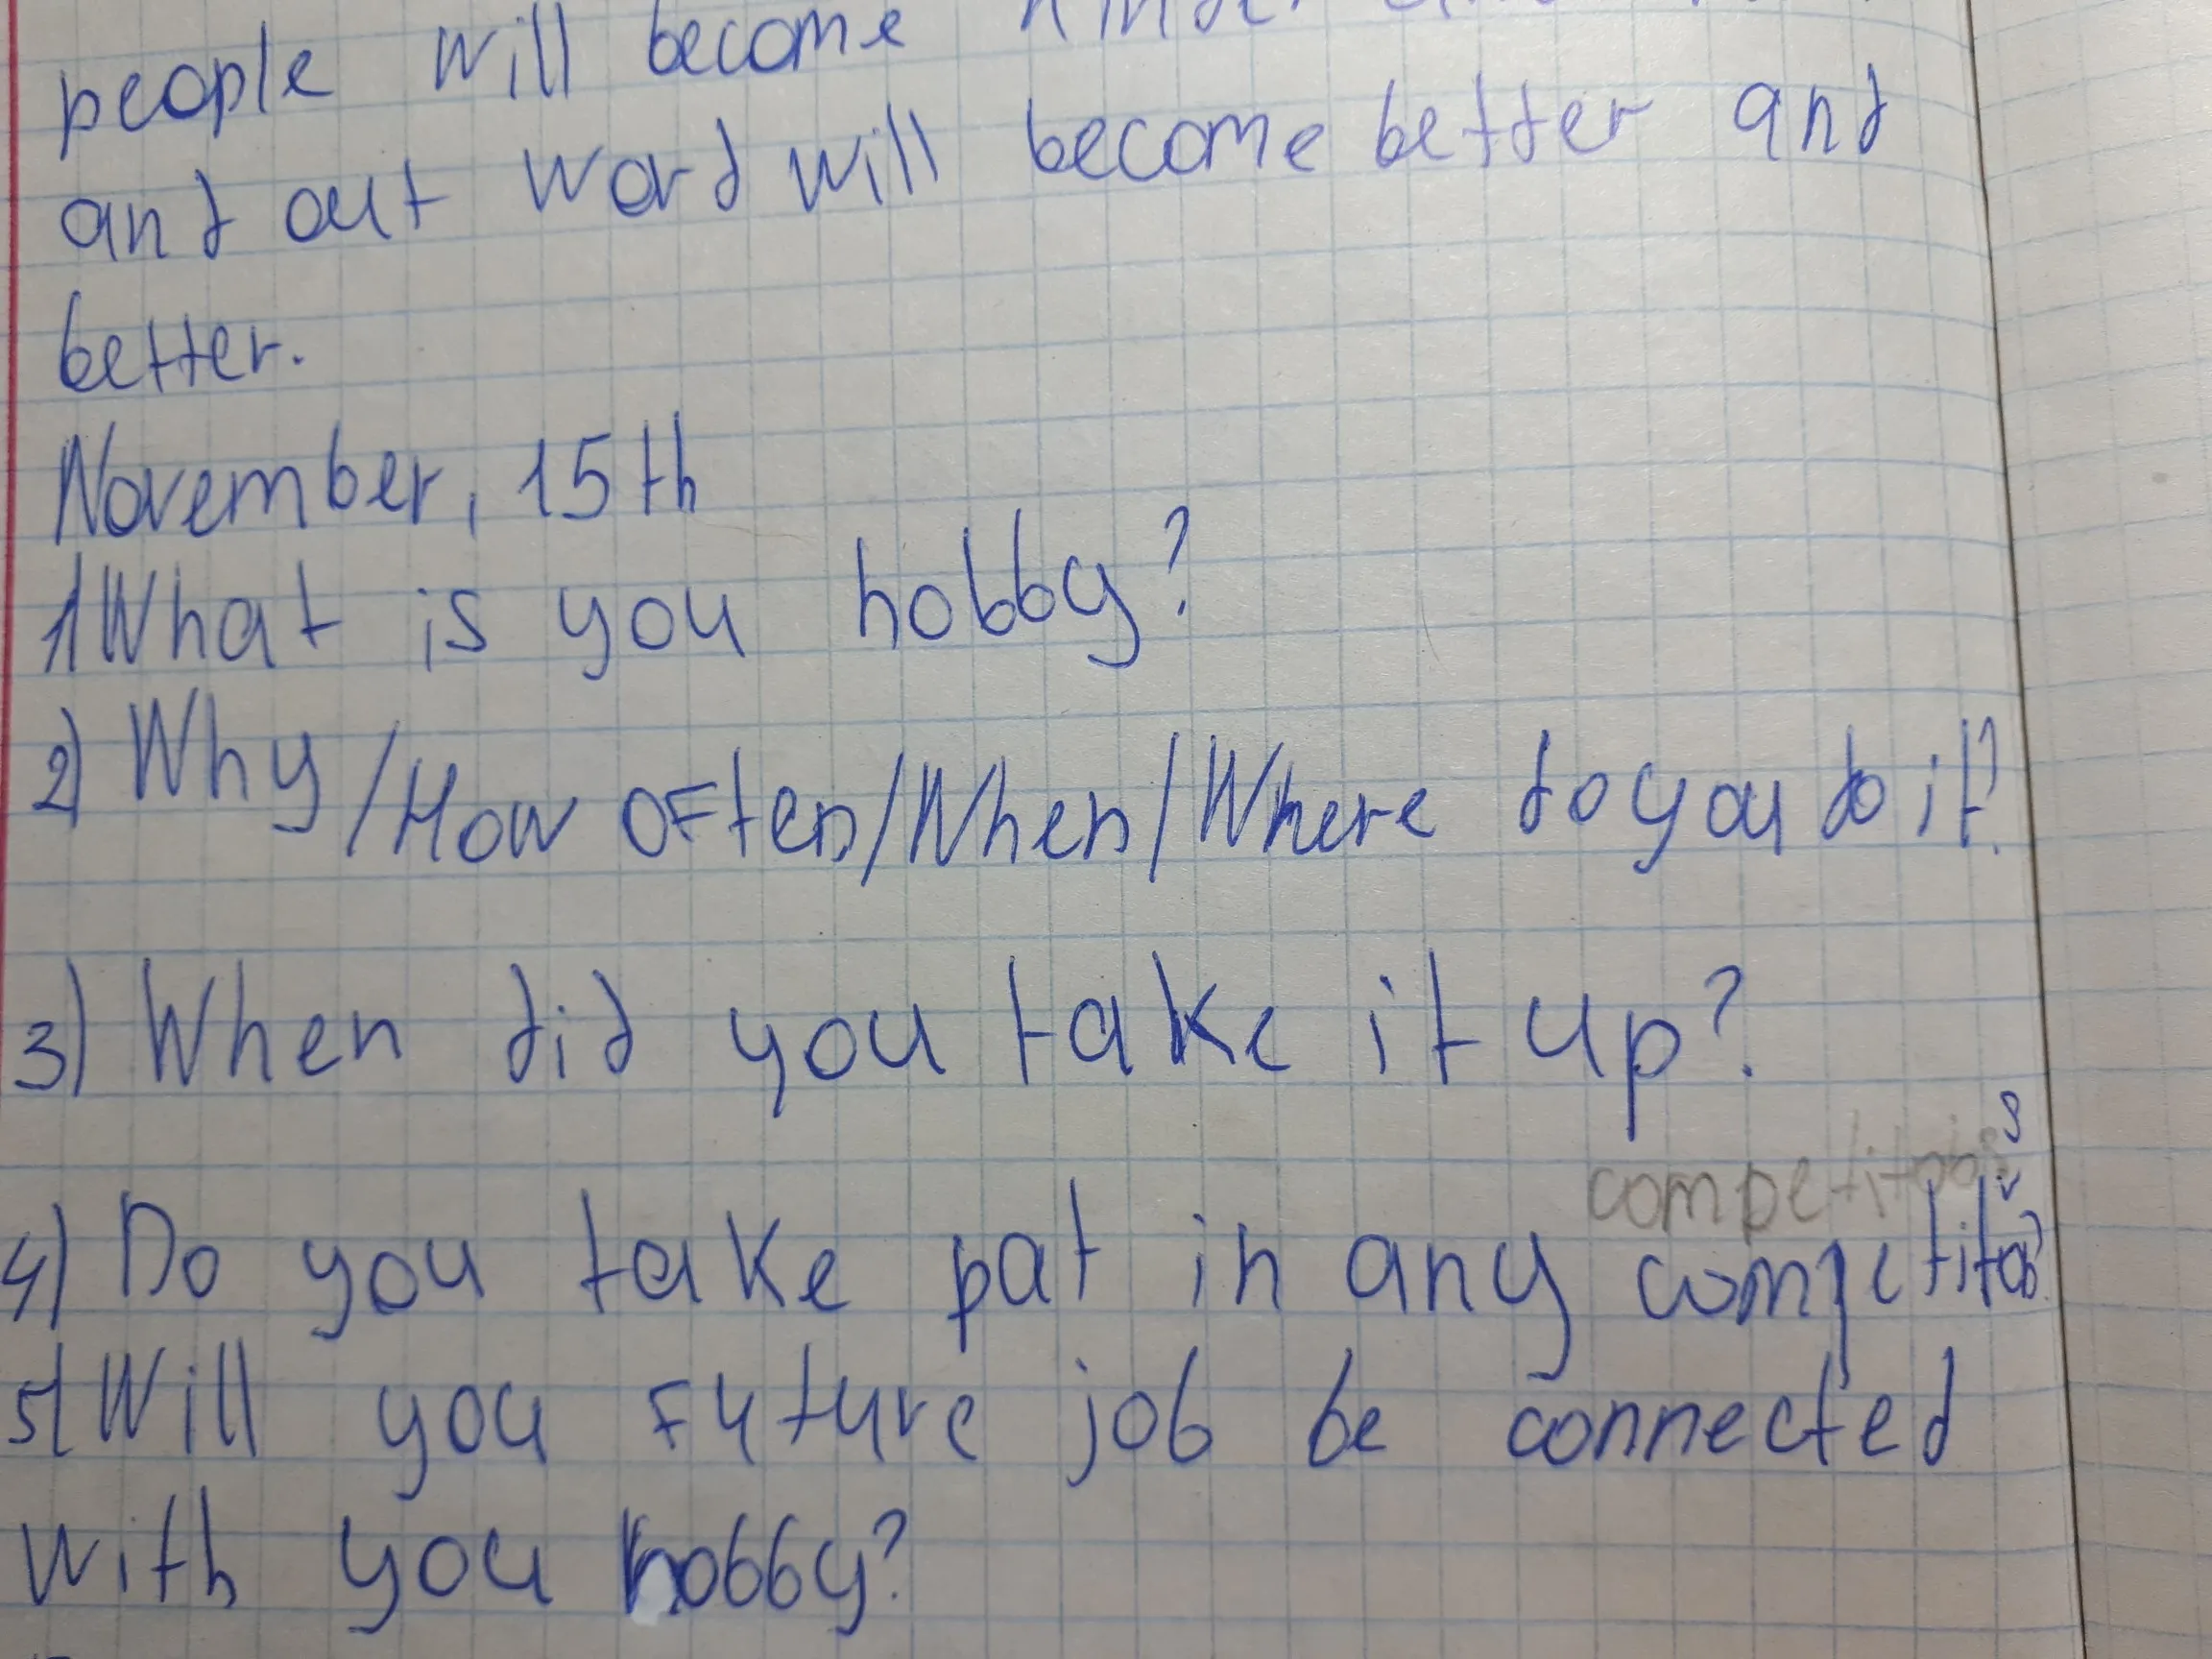 people will become
and out word will become better and
better.
November, 15th
1) What is you hobby?
2) Why/How often/When/Where do you do it?
3) When did you take it up?
4) Do you take pat in any
5) Will you future job be connected
with you hobby?